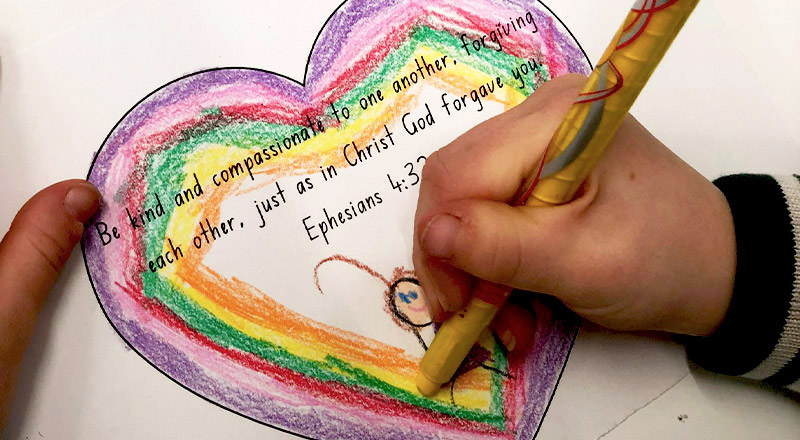 Be kind and compassionate to one another, forgiving
each other, just as in Christ God forgave you.
Ephesians 4:32